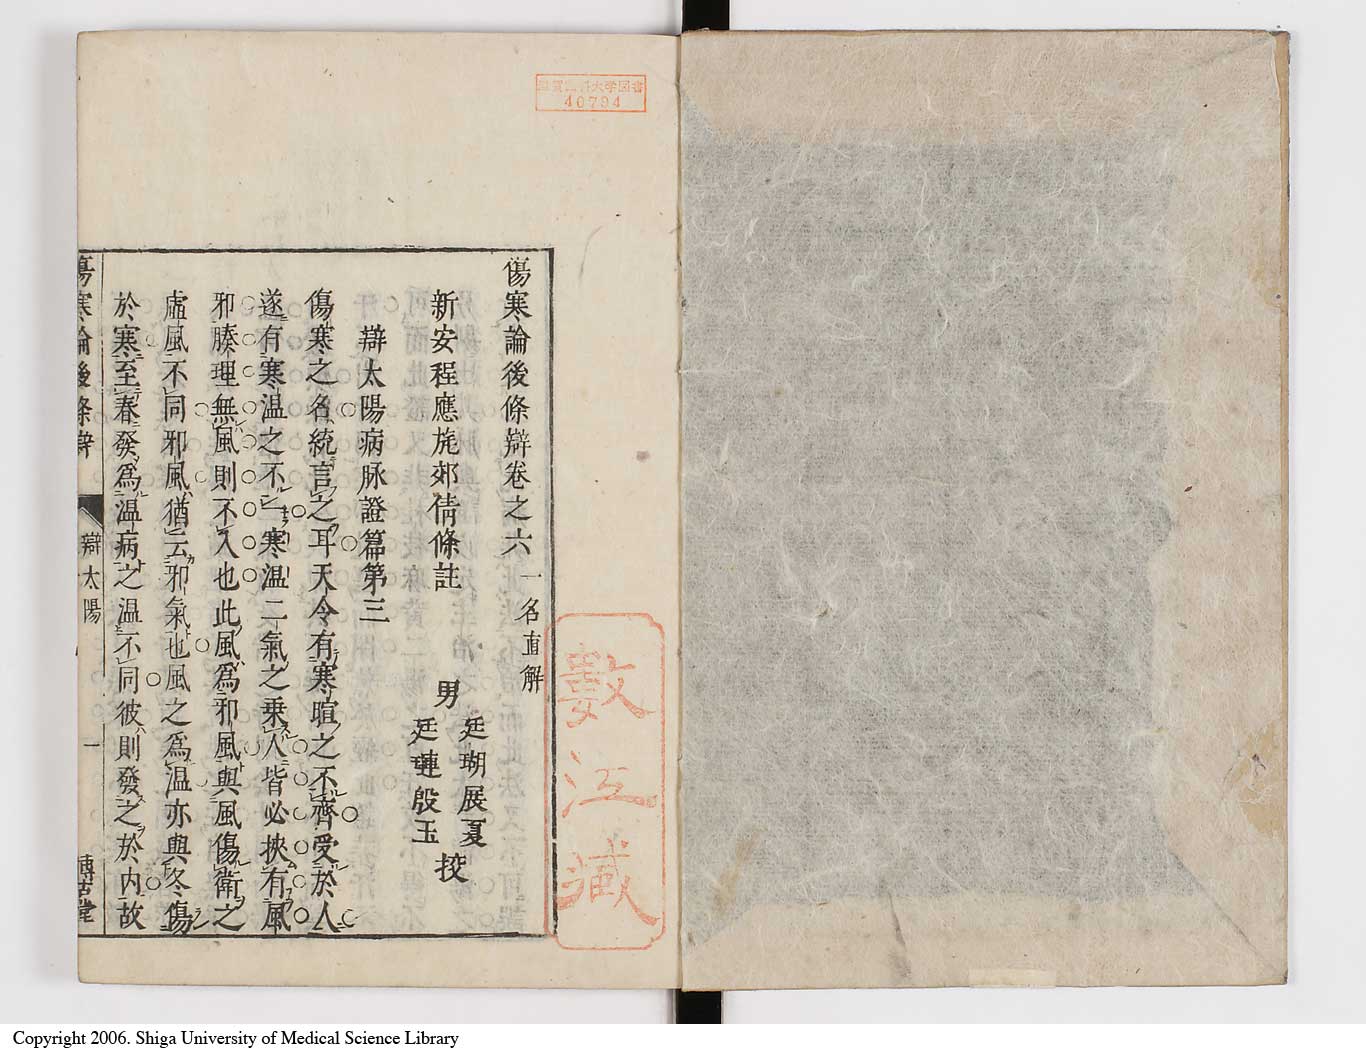 傷寒論後條辯卷之六 一名直解
新安程應旄郊倩條註
男 廷瑚展夏
廷璉殷玉 挍
辯太陽病脉證篇第三
傷寒之名統言之耳天令有寒暄之不齊受於人
遂有寒温之不一寒温二氣之乗人皆必挾有風
邪腠理無風則不入也此風爲邪風與風傷衛之
虛風不同邪風猶云邪氣也風之爲温亦與冬傷
於寒至春發爲温病之温不同彼則發之於内故
傷寒論後條辯
辯太陽
一
博古堂
數江藏
滋賀医科大学図書
40794
Copyright 2006. Shiga University of Medical Science Library